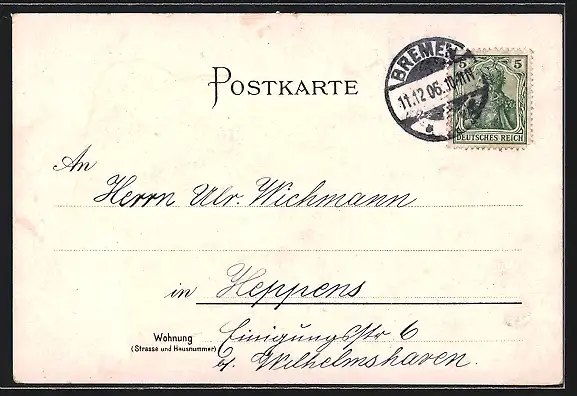 POSTKARTE
BREMEN
11.12 06. 10-11N
5 5
DEUTSCHES REICH
An
Herrn Ulr. Wichmann
in Heppens
Wohnung
(Strasse und Hausnummer)
Einigungsstr 6
b/. Wilhelmshaven.